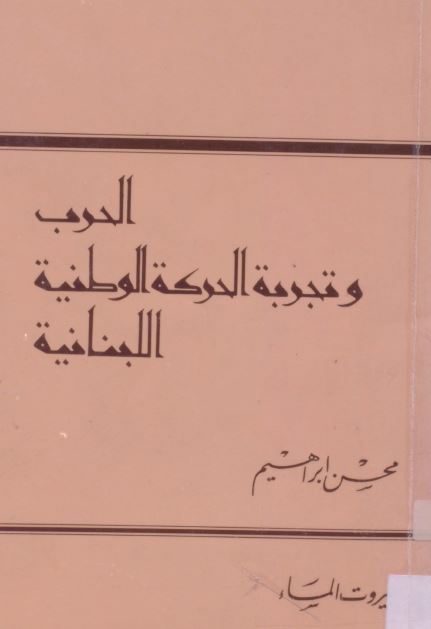 الحرب
وتجربة الحركة الوطنية
اللبنانية
محسن ابراهيم
بيروت المساء